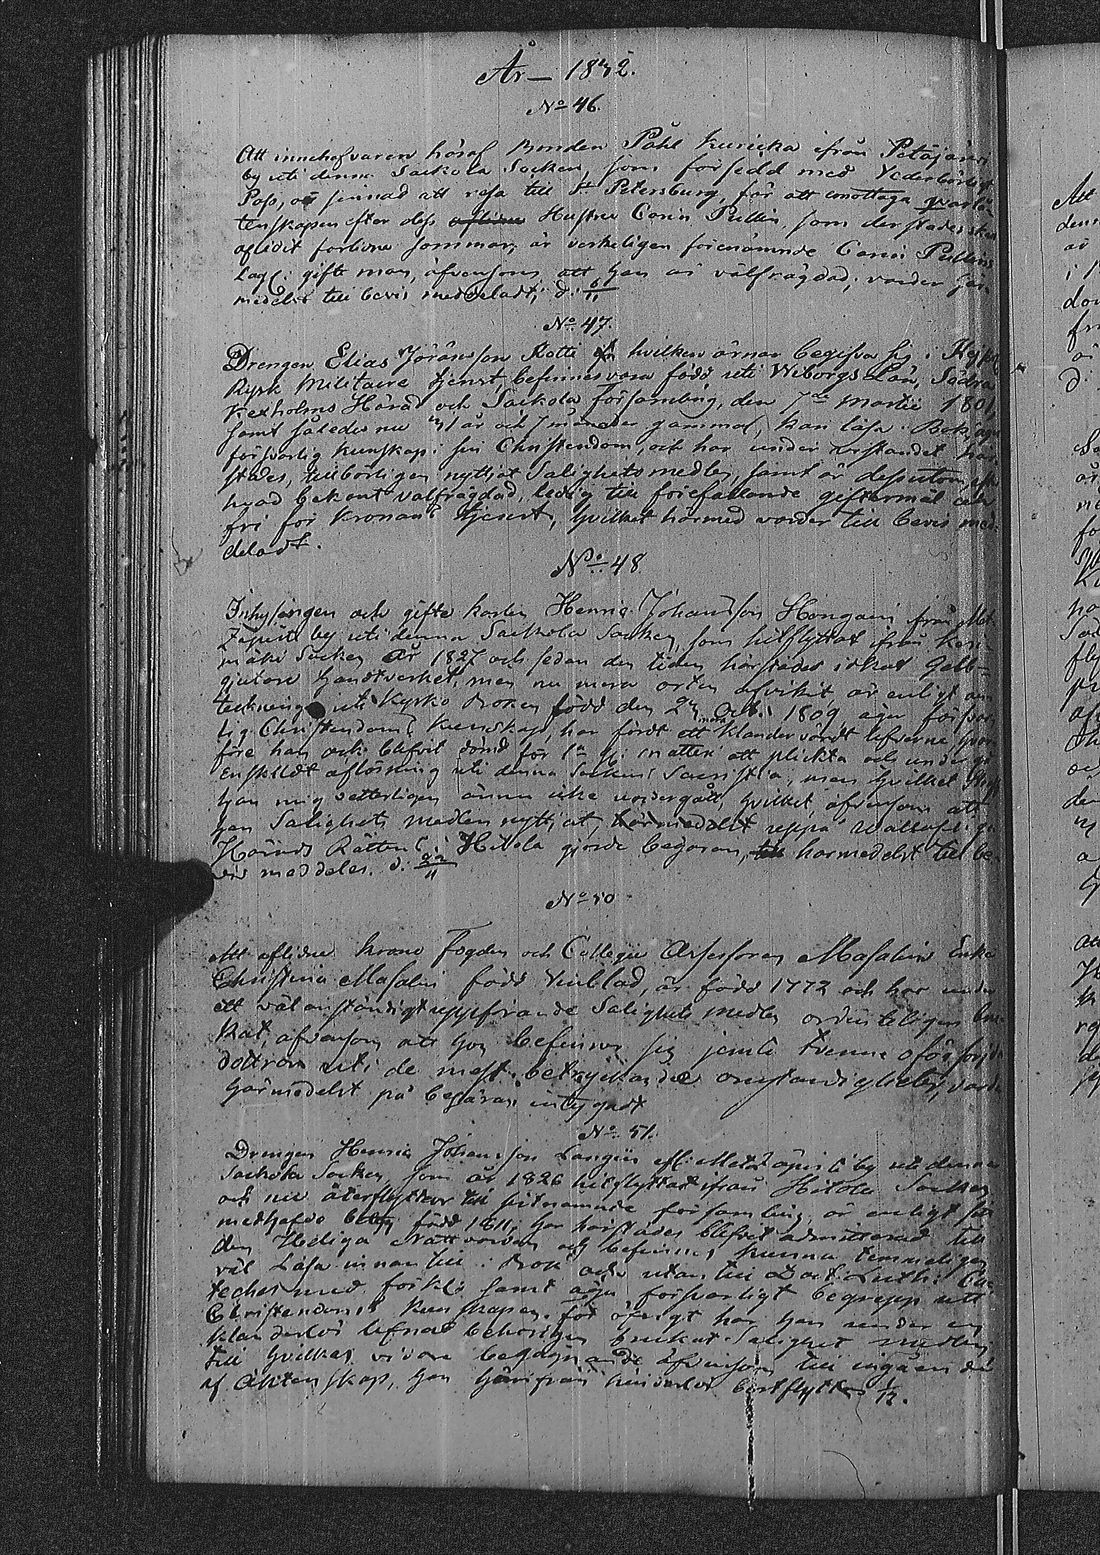 År 1832.
No 46.
Att innehafvaren häraf Bonden Påhl Kuricka ifrån Petäjärvi
by uti denna Sackola Socken, som försedd med Vederbörligt
Pass, är sinnad att resa till St Petersburg, för att emottaga
efter dess Hustru Carin Pullin, som derstädes
aflidit förlidne sommar, är verkeligen förenämnde Carin Pullins
Lagl. gifte man, äfvensom att han är välfrägdad, varder här-
medelst till bevis meddeladt; d: 6/11
No 47.
Drengen Elias Jöransson Kotti hvilken ärnar begifva sig i
Rysk Militaire tjenst, befinnes vara född uti Wiborgs Län, Södra
Kexholms Härad och Sackola församling, den 7de Martii 1801,
samt således nu 31 år och 7 månader gammal, kan läsa i Bok, äger
försvarlig kunskap i sin Christendom, och har under vistandet här-
städes, tillbörligen nyttjat Salighetsmedlen, samt är dessutom,
hvad bekant välfrägdad, ledig till förefallande giftermål och
fri för Kronans tjenst, hvilket härmed varder till bevis med-
deladt.
No 48.
Inhysingen och gifte karlen Henric Johansson Hongain från
by uti denna Sackola Socken, som hitflyttat från
mäki Socken År 1827 och sedan den tiden härstädes idkat Gelb-
gjutare handtverket, men nu mera orten afvikit är enligt an-
teckning uti Kyrko Boken född den 2 Octb. 1809, äger försvar-
lig Christendoms kunskap, har fördt ett klandervärdt lefverne,
före han ock blefvit dömd för 1a att plickta och undergå
Enskildt aflösning uti denna Sockens Sacristia, men hvilket
han mig vetterligen ännu icke undergått, hvilket äfvensom att
han Salighets medlen nyttjat, uppå
Härads Rättens i Hitola gjorde begäran, härmedelst till be-
vis meddelas. d: 22/11
No 50
Att aflidne Krono Fogden och Collegii Assessoren Masalins Enka
Christina Masalin född Vinblad, är född 1772 och har under
ett väl anständigt uppförande Salighets medlen ordenteligen bru-
kat, äfvensom att hon befinner sig jemte tvenne oförsörjda
döttrar uti de mest betryckande omständigheter, varder
härmedelst på begäran intygadt
No 51.
Drengen Henric Johansson Langin by uti denna
Sackola Socken, som år 1826 hitflyttat ifrån Hitola Socken,
och nu återflyttar till sistnämnde församling, är enligt
medhafde född 1811, har härstädes blefvit admitterad till
den Heliga Nattvarden och befinnes kunna temmeligen
väl Läsa innantill i Bok och utantill Doct. Luth. Ca-
teches med förkl. samt äger försvarligt begrepp uti
Christendoms kunskapen, för öfrigt har han under en
klanderlös lefnad behörigen brukat Salighets medlen,
till hvilkas vidare begagnande äfvensom till ingående
af Äktenskap, han härifrån hinderlös bortflytta 1/12.